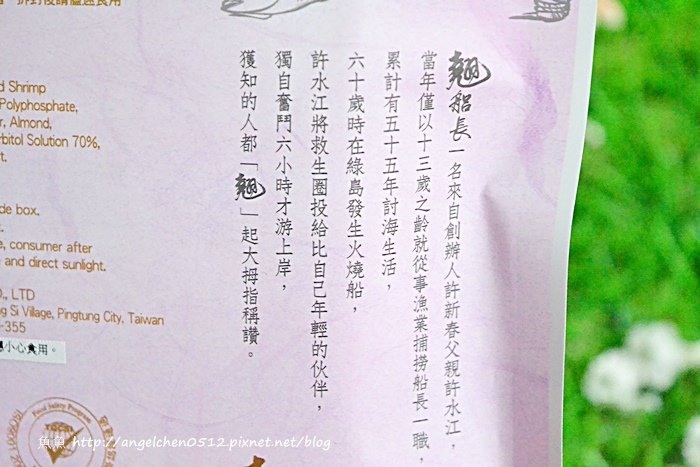 翹船長一名來自創辦人許新春父親許水江，
當年僅以十三歲之齡就從事漁業捕撈船長一職，
累計有五十五年討海生活，
六十歲時在綠島發生火燒船，
許水江將救生圈投給比自己年輕的伙伴，
獨自奮鬥六小時才游上岸，
獲知的人都「翹」起大拇指稱讚。
拆封後請儘速食用
d Shrimp
Polyphosphate,
r, Almond,
rbitol Solution 70%,
t.
de box.
t.
e, consumer after
and direct sunlight.
O., LTD
g Si Village, Pingtung City, Taiwan
-355
小心食用。
Food Safety Program
魚魚 http://angelchen0512.pixnet.net/blog